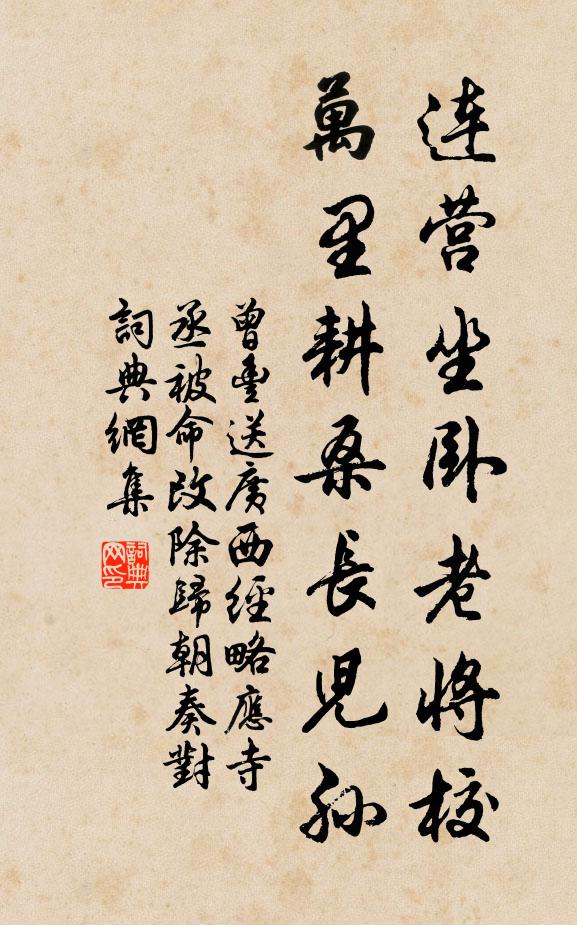 连营坐卧老将校
萬里耕桑長児孙
曾豊送廣西經略應寺
丞被命改除歸朝奏對
詞典網集
詞典网印